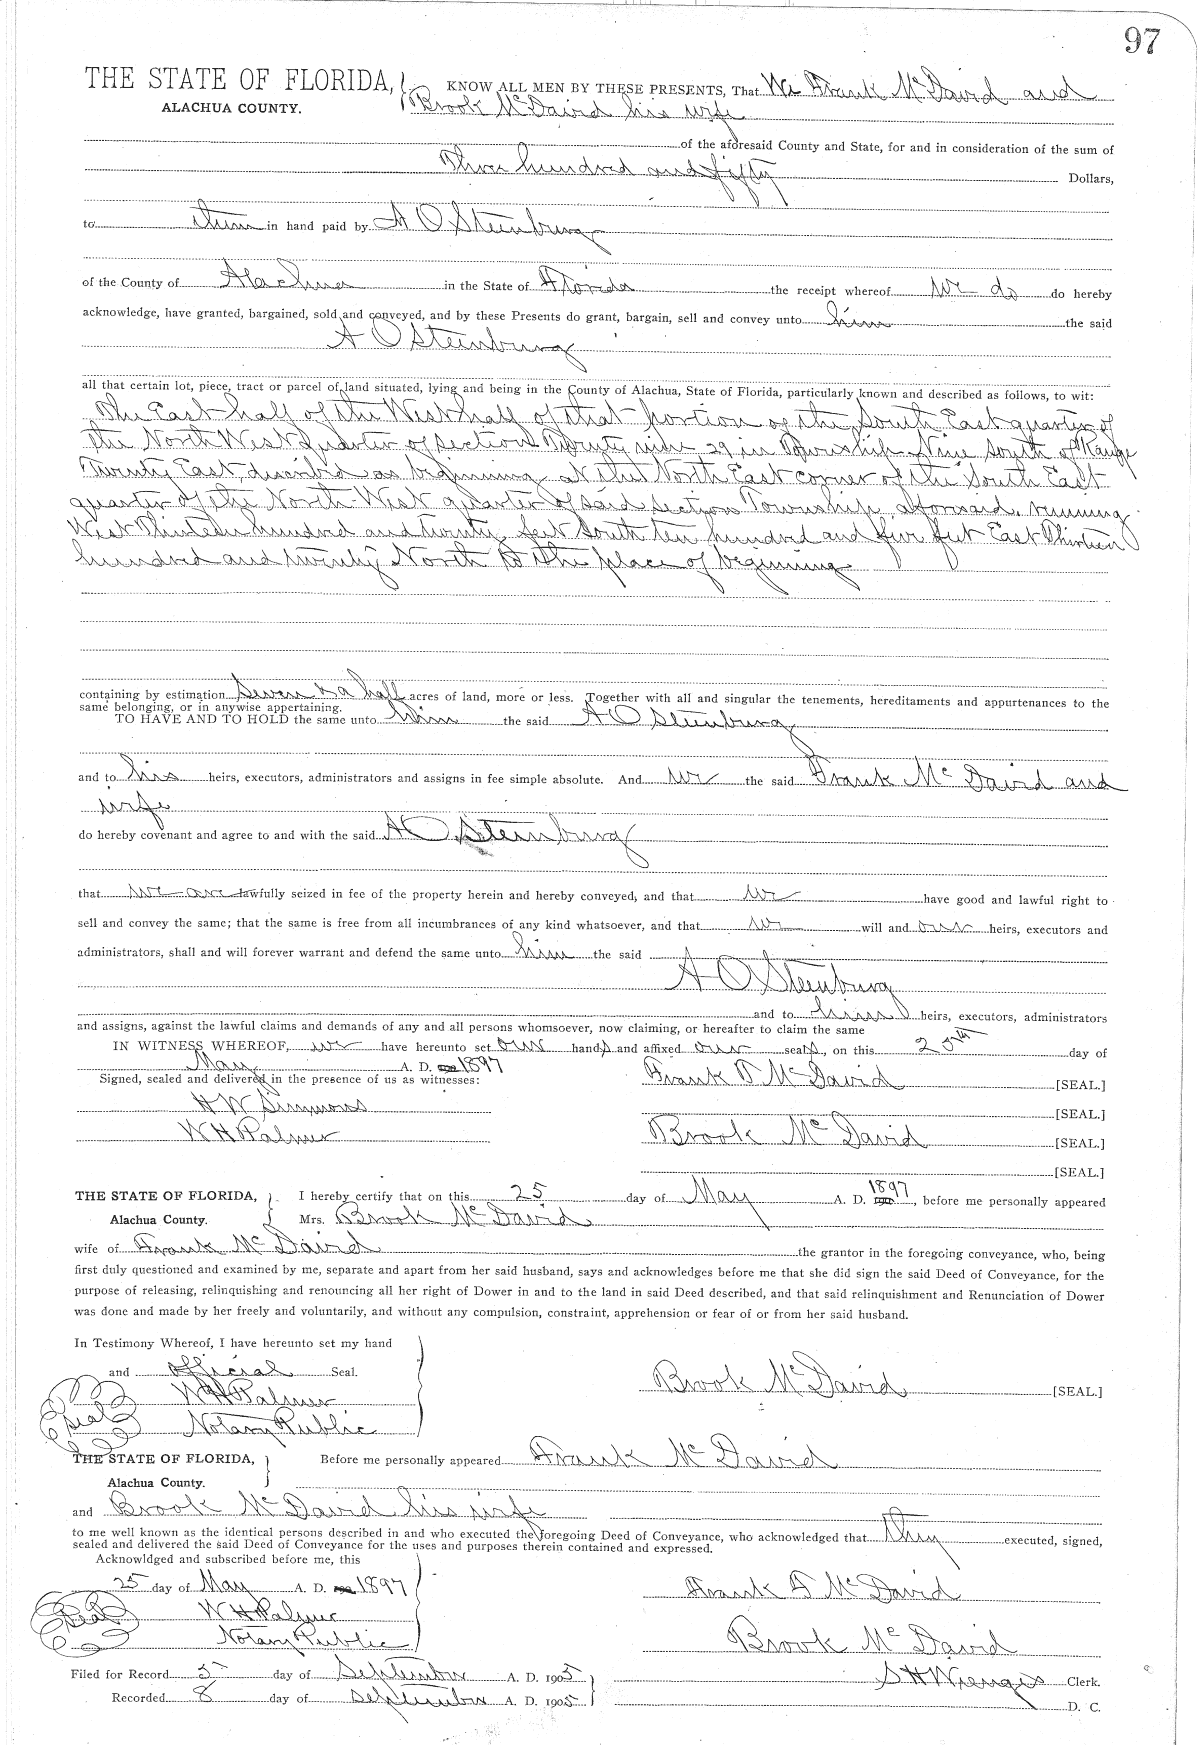 97
THE STATE OF FLORIDA, KNOW ALL MEN BY THESE PRESENTS, That We Frank McDavid and
ALACHUA COUNTY. Brook McDavid his wife
of the aforesaid County and State, for and in consideration of the sum of
Three hundred and fifty Dollars,
to them in hand paid by A O Steenburg
of the County of Alachua in the State of Florida the receipt whereof we do do hereby
acknowledge, have granted, bargained, sold and conveyed, and by these Presents do grant, bargain, sell and convey unto him the said
A O Steenburg
all that certain lot, piece, tract or parcel of land situated, lying and being in the County of Alachua, State of Florida, particularly known and described as follows, to wit:
The East half of the West half of that portion of the South East quarter of
the North West quarter of section Twenty nine 29 in Township Nine South of Range
Twenty East, described as beginning at the North East corner of the South East
quarter of the North West quarter of said section Township aforesaid, running
West Thirteen hundred and twenty feet South ten hundred and five feet East Thirteen
hundred and twenty North to the place of beginning
containing by estimation Seven & a half acres of land, more or less. Together with all and singular the tenements, hereditaments and appurtenances to the
same belonging, or in anywise appertaining.
TO HAVE AND TO HOLD the same unto him the said A O Steenburg
and to his heirs, executors, administrators and assigns in fee simple absolute. And we the said Frank McDavid and
wife
do hereby covenant and agree to and with the said A O Steenburg
that we are lawfully seized in fee of the property herein and hereby conveyed, and that we have good and lawful right to
sell and convey the same; that the same is free from all incumbrances of any kind whatsoever, and that we will and our heirs, executors and
administrators, shall and will forever warrant and defend the same unto him the said
A O Steenburg
and to him heirs, executors, administrators
and assigns, against the lawful claims and demands of any and all persons whomsoever, now claiming, or hereafter to claim the same
IN WITNESS WHEREOF, we have hereunto set our hands and affixed our seals, on this 25th day of
May A. D. 1897
Signed, sealed and delivered in the presence of us as witnesses: Frank D McDavid [SEAL.]
H W Simmons [SEAL.]
W H Palmer Brook McDavid [SEAL.]
[SEAL.]
THE STATE OF FLORIDA, I hereby certify that on this 25 day of May A. D. 1897, before me personally appeared
Alachua County. Mrs. Brook McDavid
wife of Frank McDavid the grantor in the foregoing conveyance, who, being
first duly questioned and examined by me, separate and apart from her said husband, says and acknowledges before me that she did sign the said Deed of Conveyance, for the
purpose of releasing, relinquishing and renouncing all her right of Dower in and to the land in said Deed described, and that said relinquishment and Renunciation of Dower
was done and made by her freely and voluntarily, and without any compulsion, constraint, apprehension or fear of or from her said husband.
In Testimony Whereof, I have hereunto set my hand
and official Seal. Brook McDavid [SEAL.]
W H Palmer
seal Notary Public
THE STATE OF FLORIDA, Before me personally appeared Frank McDavid
Alachua County.
and Brook McDavid his wife
to me well known as the identical persons described in and who executed the foregoing Deed of Conveyance, who acknowledged that they executed, signed,
sealed and delivered the said Deed of Conveyance for the uses and purposes therein contained and expressed.
Acknowldged and subscribed before me, this
25 day of May A. D. 1897 Frank D McDavid
Seal W H Palmer
Notary Public Brook McDavid
Filed for Record 5 day of September A. D. 1905 S H Wienges Clerk.
Recorded 8 day of September A. D. 1905 D. C.